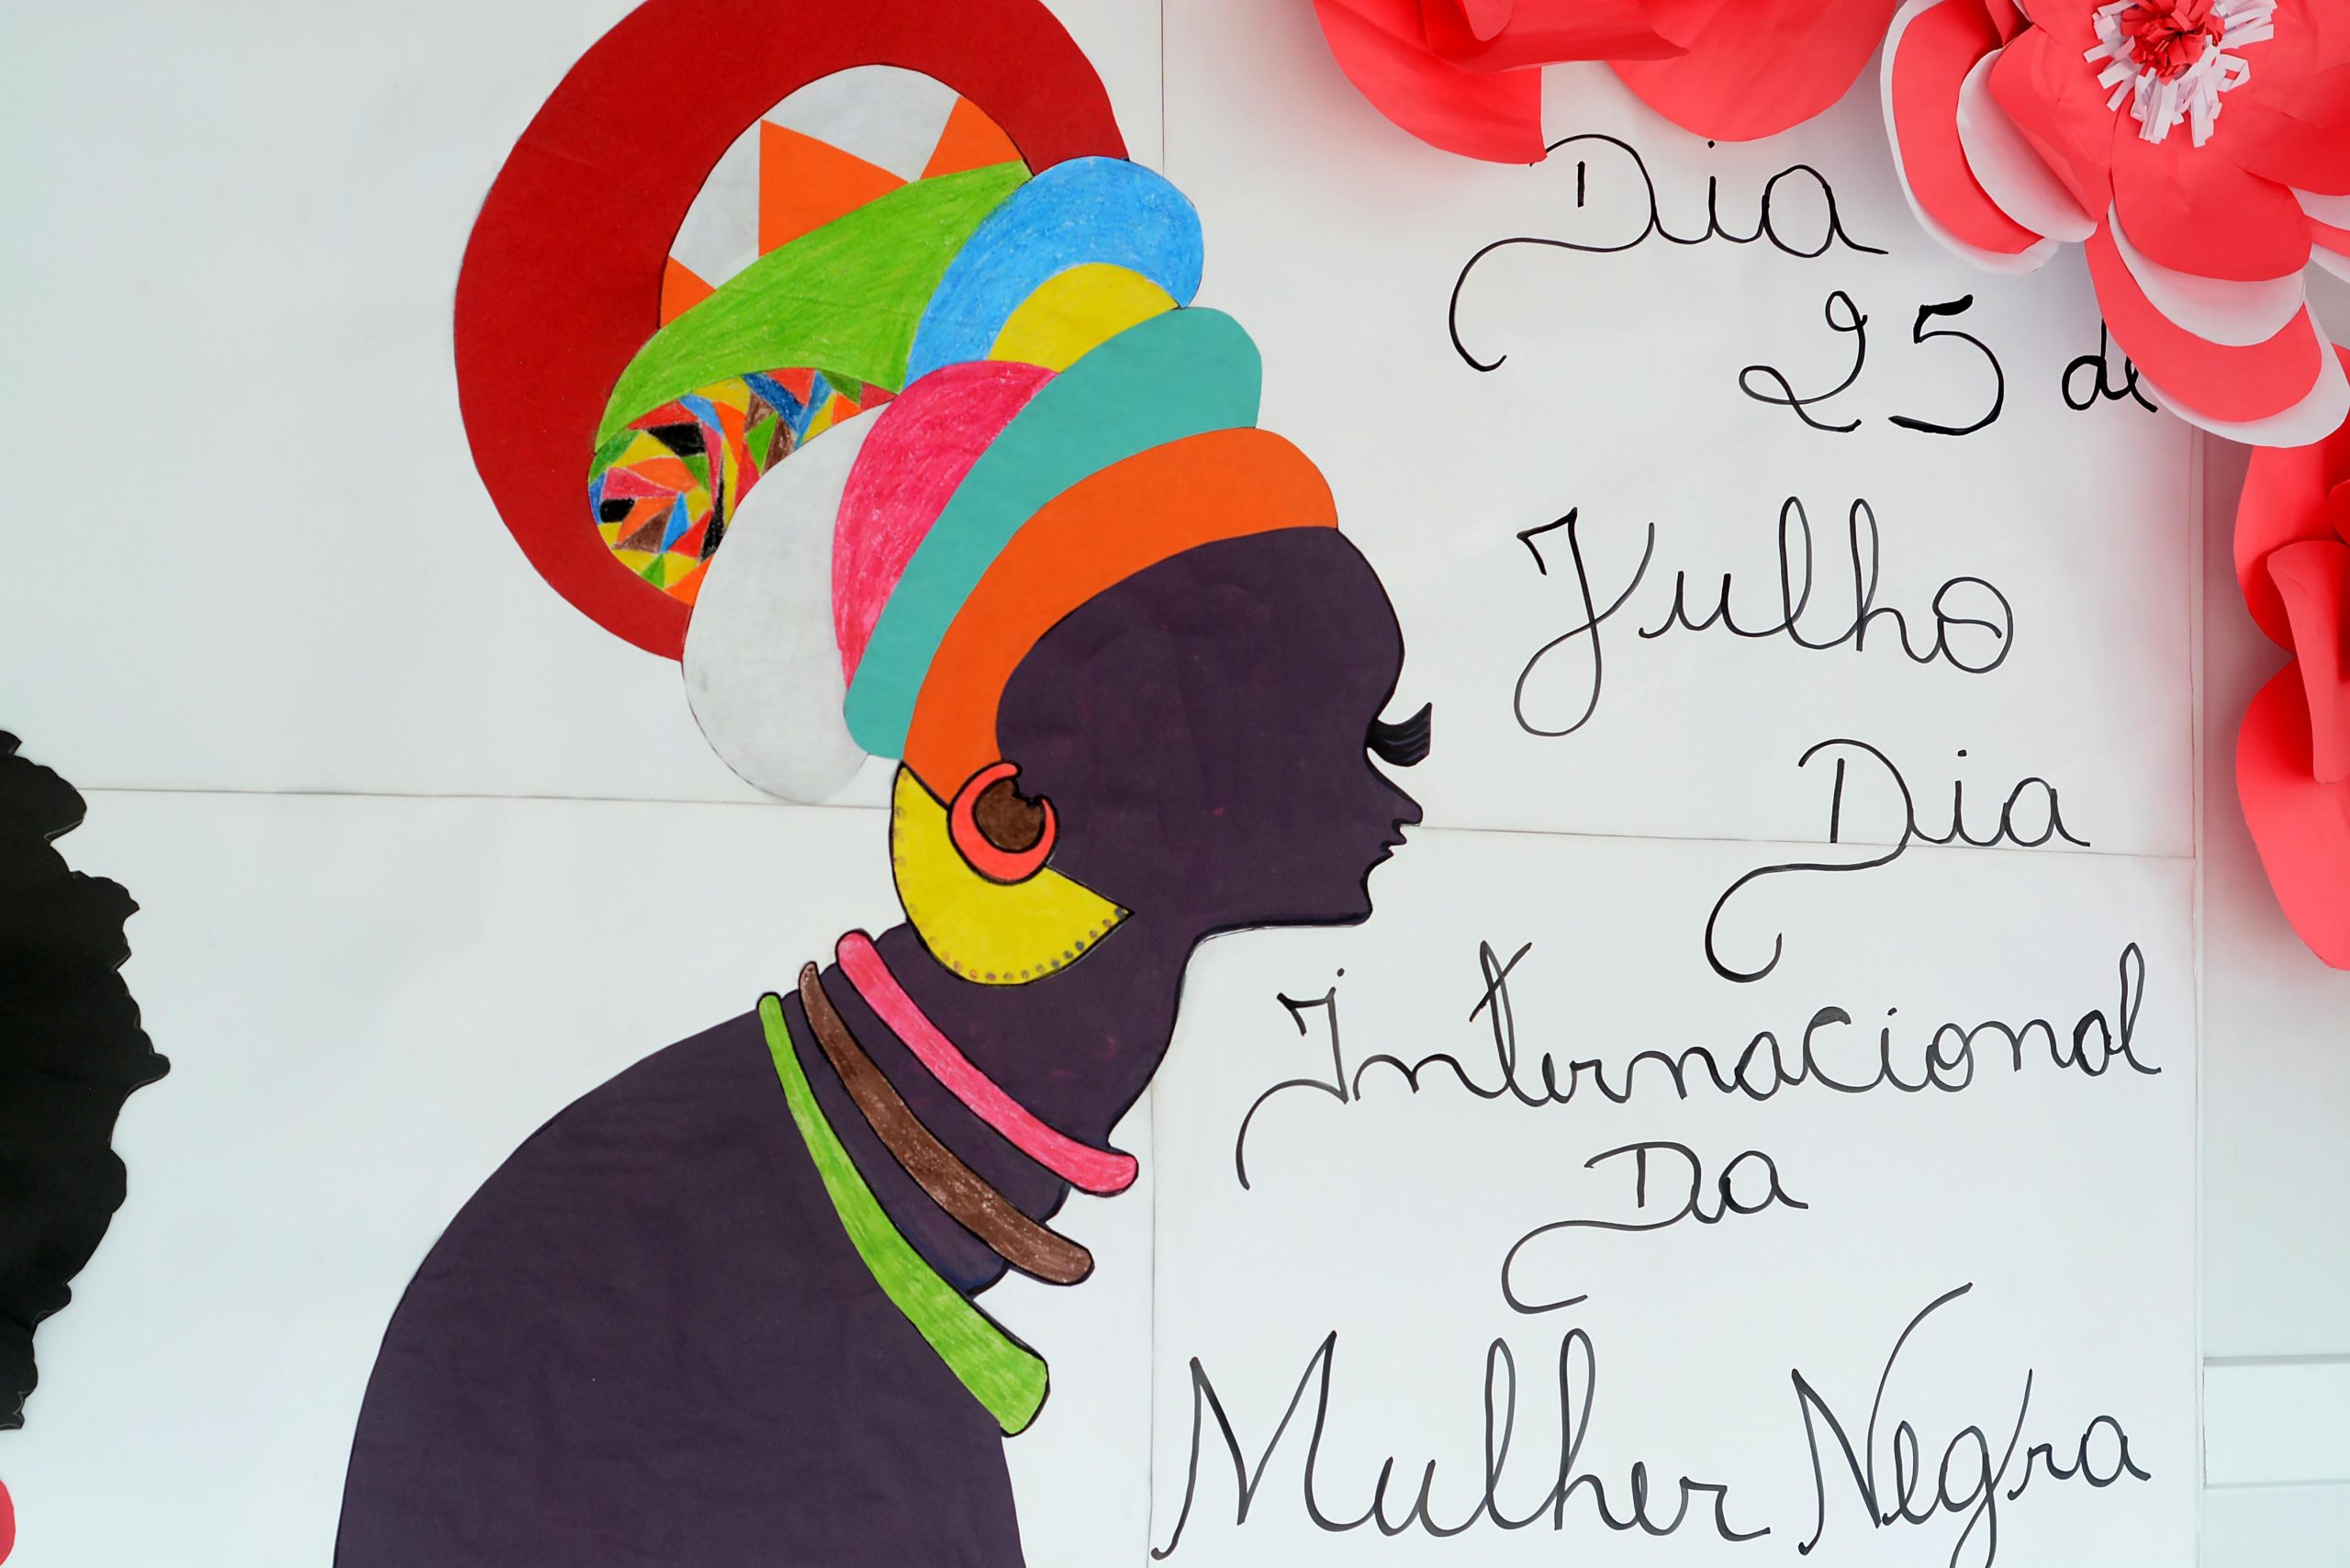 Dia
25 de
Julho
Dia
Internacional
Da
Mulher Negra